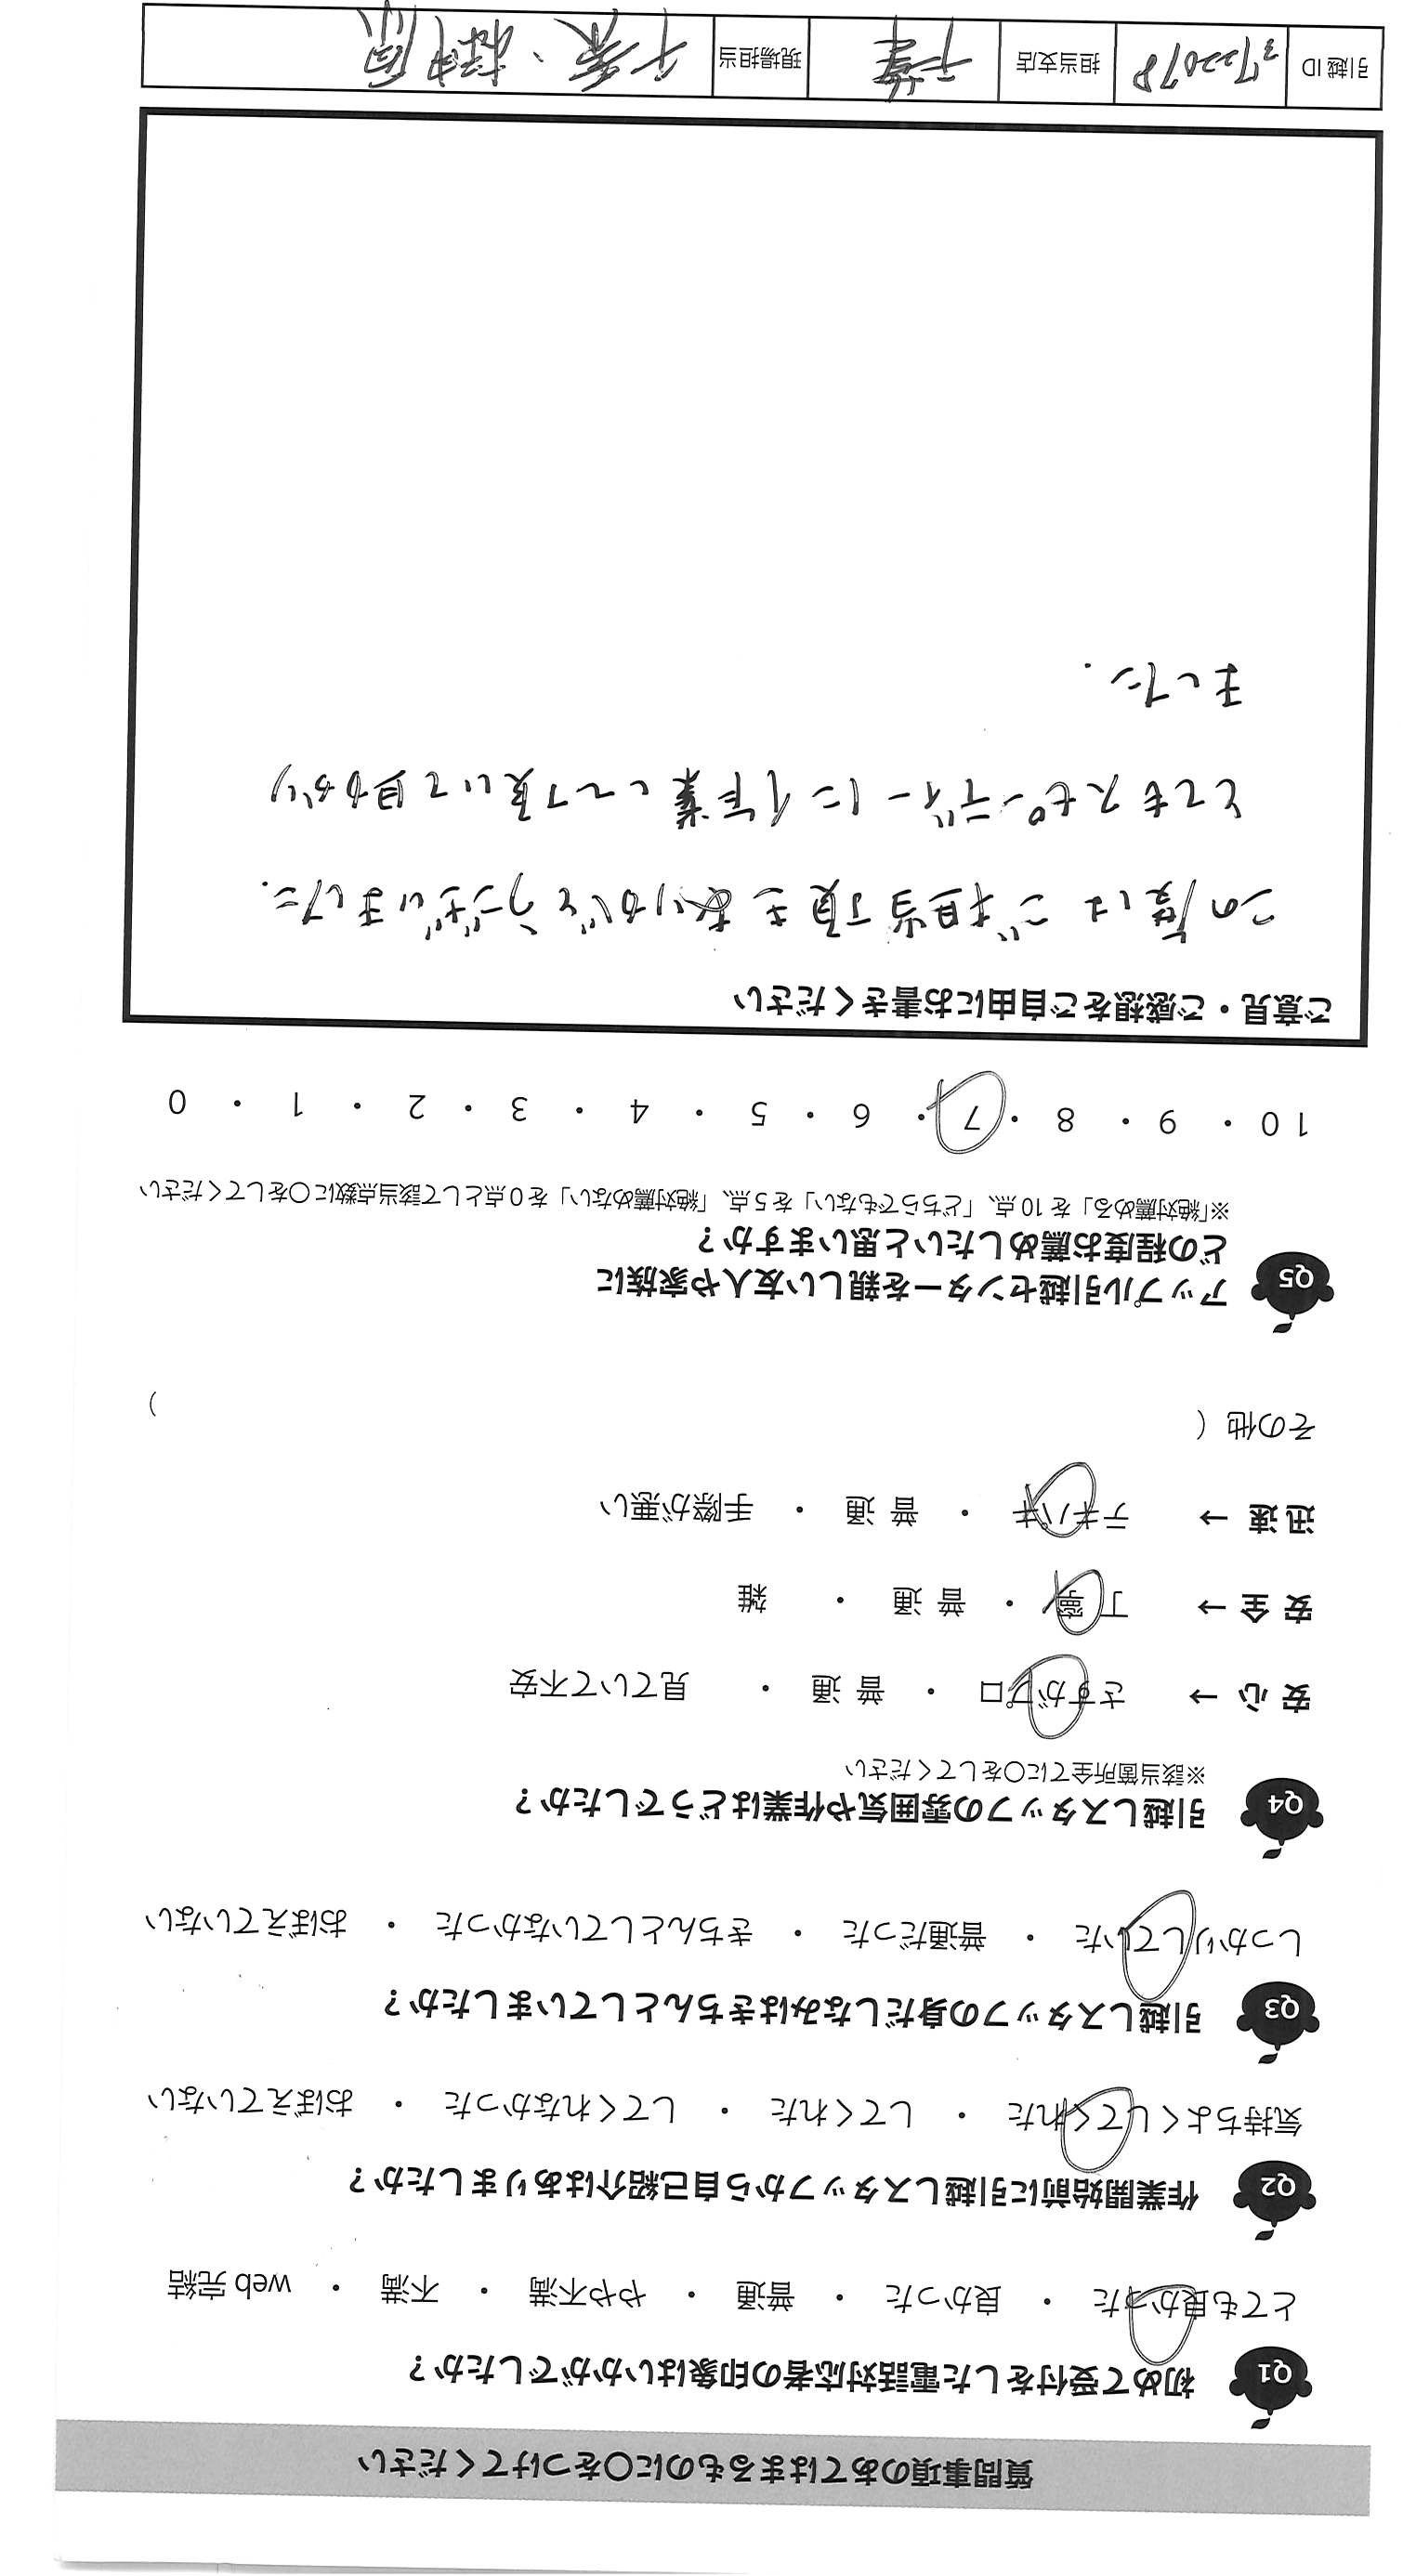 質問事項のあてはまるものに〇をつけてください
Q1 初めて受付をした電話対応者の印象はいかがでしたか？
とても良かった ・ 良かった ・ 普通 ・ やや不満 ・ 不満 ・ web 完結
Q2 作業開始前に引越しスタッフから自己紹介はありましたか？
気持ちよくしてくれた ・ してくれた ・ してくれなかった ・ おぼえていない
Q3 引越しスタッフの身だしなみはきちんとしていましたか？
しっかりしていた ・ 普通だった ・ きちんとしていなかった ・ おぼえていない
Q4 引越しスタッフの雰囲気や作業はどうでしたか？
※該当箇所全てに〇をしてください
安 心 → さすがプロ ・ 普 通 ・ 見ていて不安
安 全 → 丁 寧 ・ 普 通 ・ 雑
迅 速 → テキパキ ・ 普 通 ・ 手際が悪い
その他（ ）
Q5 アップル引越センターを親しい友人や家族に
どの程度お薦めしたいと思いますか？
※「絶対薦める」を 10 点、「どちらでもない」を 5 点、「絶対薦めない」を 0 点として該当点数に〇をしてください
10 ・ 9 ・ 8 ・ 7 ・ 6 ・ 5 ・ 4 ・ 3 ・ 2 ・ 1 ・ 0
ご意見・ご感想をご自由にお書きください
この度はご担当頂きありがとうございました.
とてもスピーディーに作業して頂いて助かり
ました.
引越 ID 3722078 担当支店 千葉 現場担当 千葉、